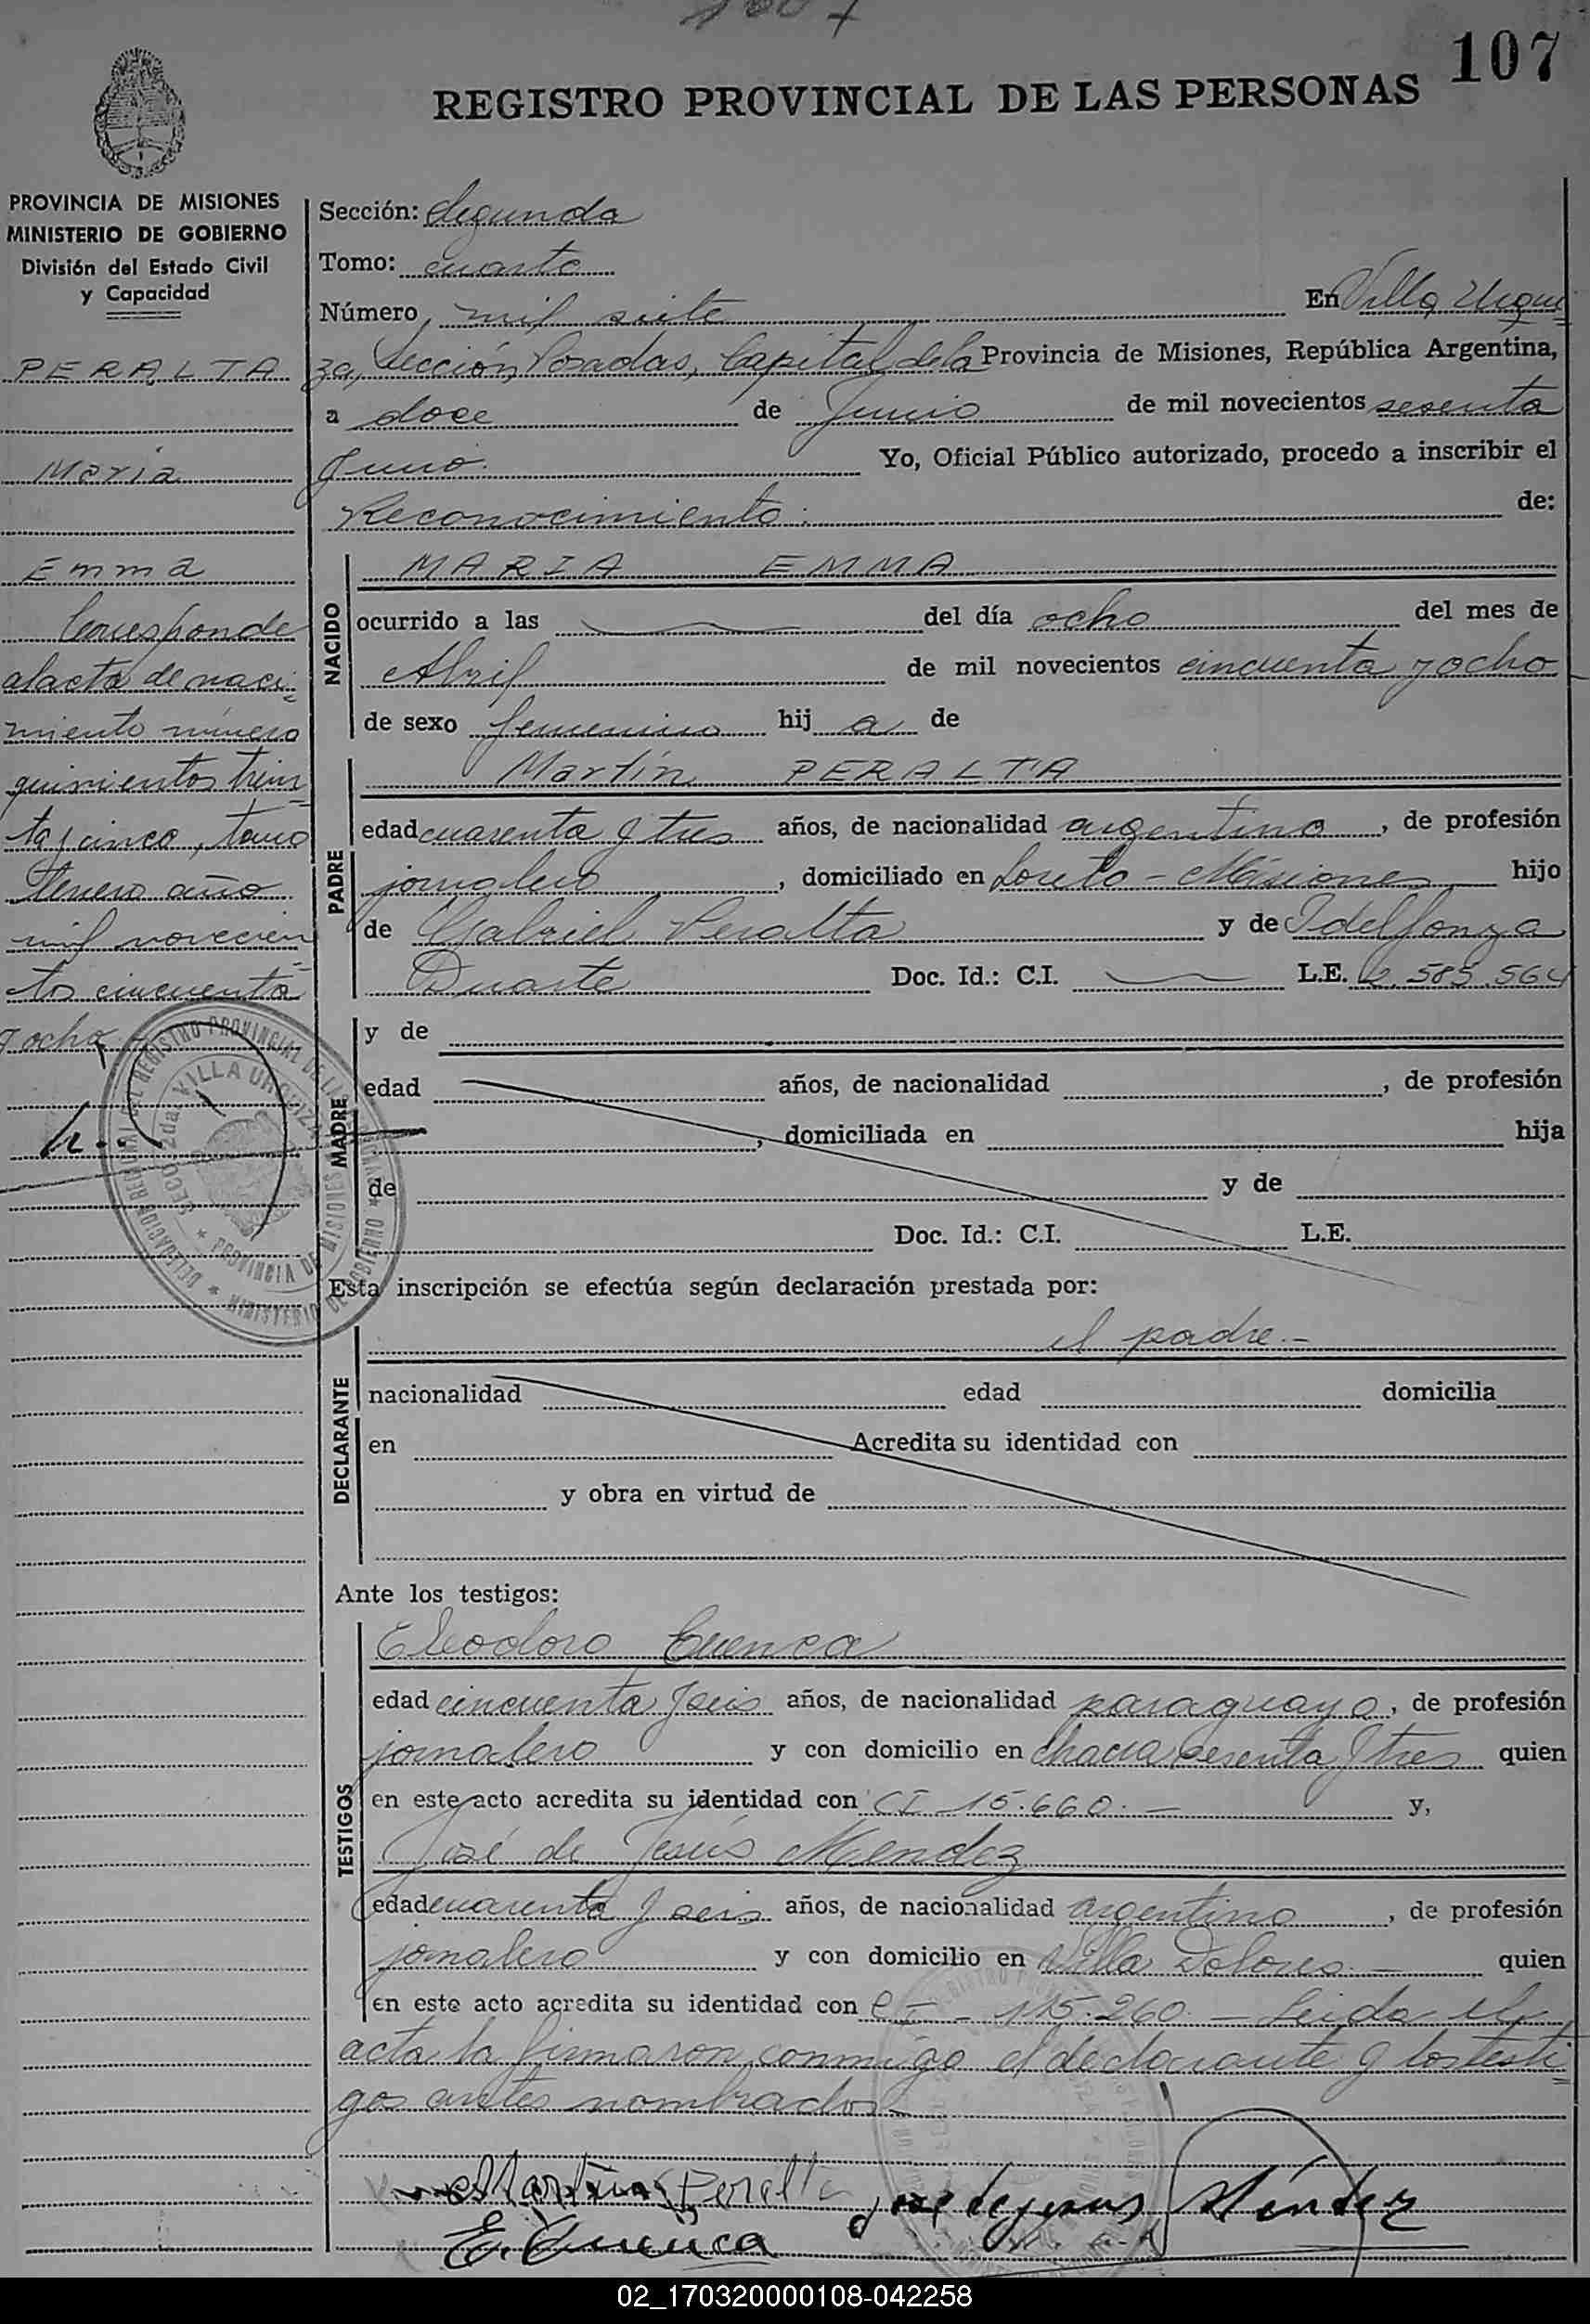 1007
107
REGISTRO PROVINCIAL DE LAS PERSONAS
PROVINCIA DE MISIONES
MINISTERIO DE GOBIERNO
División del Estado Civil
y Capacidad
PERALTA
Maria
Emma
Corresponde
al acta de naci-
miento número
quinientos trein-
ta y cinco, tomo
tercero año
mil novecien-
tos cincuenta
y ocho
Sección: Segunda
Tomo: cuarto
Número mil siete En Villa Urqui-
za, Sección Posadas, Capital de la Provincia de Misiones, República Argentina,
a doce de Junio de mil novecientos sesenta
y uno. Yo, Oficial Público autorizado, procedo a inscribir el
Reconocimiento. de:
NACIDO
MARIA EMMA
ocurrido a las del día ocho del mes de
Abril de mil novecientos cincuenta y ocho
de sexo femenino hij a de
PADRE
Martín PERALTA
edad cuarenta y tres años, de nacionalidad argentino, de profesión
jornalero, domiciliado en Loreto - Misiones hijo
de Gabriel Peralta y de Idelfonza
Duarte Doc. Id.: C.I. L.E. 2.585.564
MADRE
y de
edad años, de nacionalidad , de profesión
, domiciliada en hija
de y de
Doc. Id.: C.I. L.E.
Esta inscripción se efectúa según declaración prestada por:
el padre.-
DECLARANTE
nacionalidad edad domicilia
en Acredita su identidad con
y obra en virtud de
Ante los testigos:
TESTIGOS
Eleodoro Cuenca
edad cincuenta y seis años, de nacionalidad paraguayo, de profesión
jornalero y con domicilio en chacra sesenta y tres quien
en este acto acredita su identidad con CI 15.660.- y,
José de Jesús Mendez
edad cuarenta y seis años, de nacionalidad argentino, de profesión
jornalero y con domicilio en Villa Dolores.- quien
en este acto acredita su identidad con 115.260.- Leida el
acta la firmaron conmigo el declarante y los testi-
gos antes nombrados.-
Martin Peralta
Jose de jesus Méndez
E. Cuenca
DELEGACION REGIONAL DEL REGISTRO PROVINCIAL DE LAS
SECC. 2da. VILLA URQUIZA
PROVINCIA DE MISIONES
MINISTERIO DE GOBIERNO
02_170320000108-042258